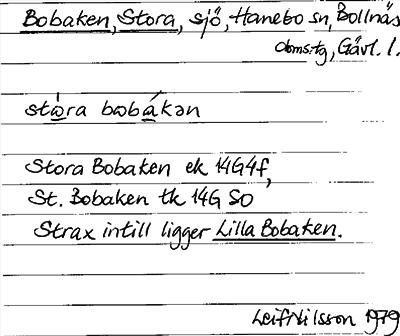 Bobaken, Stora, sjö, Hanebo sn, Bollnäs
doms:tg, Gävl. l.
stὼra bωbákən
Stora Bobaken ek 14G4f,
St. Bobaken tk 14G SO
Strax intill ligger Lilla Bobaken.
Leif Nilsson 1979